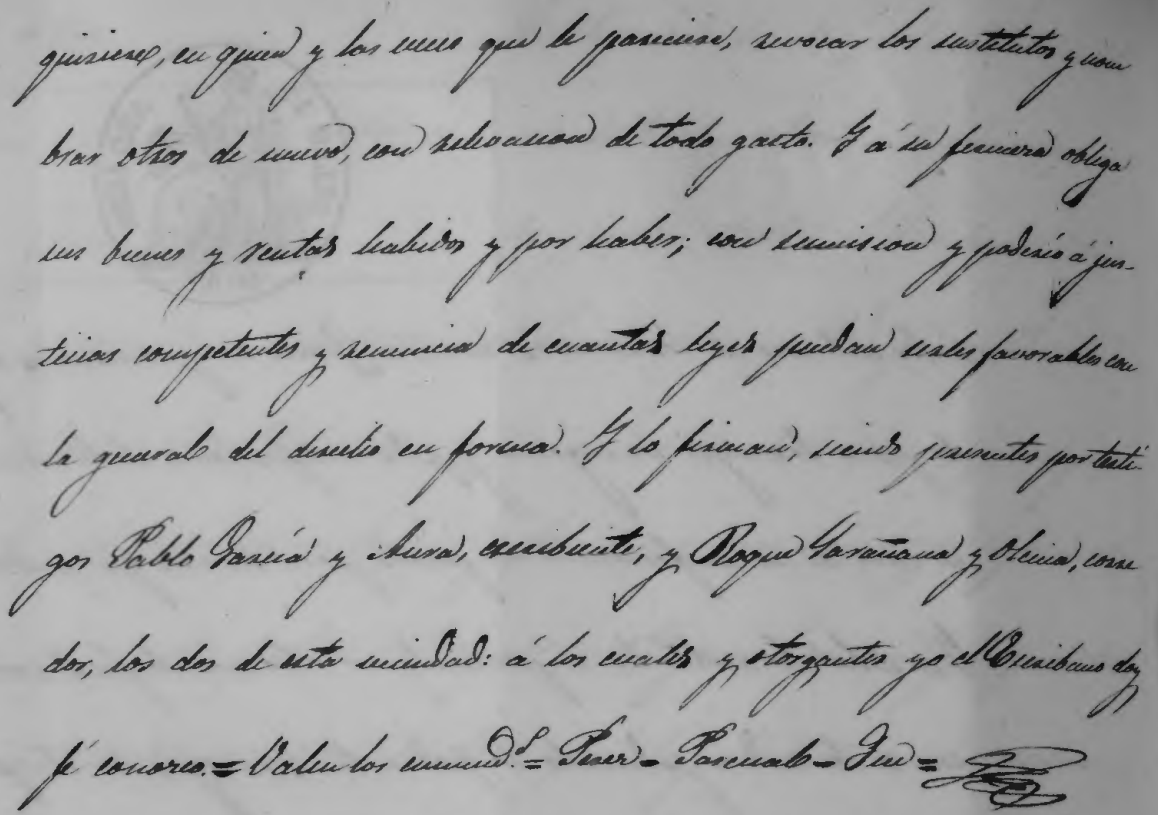 quisiere, en quien y las veces que le pareciere, revocar los sustitutos y nom
brar otros de nuevo, con relevacion de todo gasto. Y á su firmeza obliga
sus bienes y rentas habidos y por haber; con sumision y poderío á jus-
ticias competentes y renuncia de cuantas leyes puedan serles favorables con
la general del derecho en forma. Y lo firman, siendo presentes por testi-
gos Pablo García y Aura, escribiente, y Roque Garañana y Olcina, corre
dor, los dos de esta vecindad: á los cuales y otorgantes yo el Escribano doy
fé conozco. = Valen los enmend.s = Perez - Pascual -